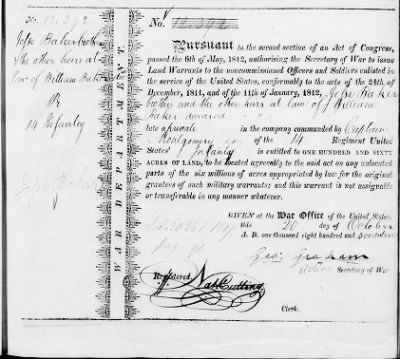 No. 12.392
Jesse Baker brother
& the other heirs at
law of William Baker
Pr
14 Infantry
Jesse Baker
WAR DEPARTMENT.
No. 12.392
Pursuant to the second section of an Act of Congress,
passed the 6th of May, 1812, authorising the Secretary of War to issue
Land Warrants to the noncommissioned Officers and Soldiers enlisted in
the service of the United States, conformably to the acts of the 24th of
December, 1811, and of the 11th of January, 1812, Jesse Baker
brother and the other heirs at law of William
Baker deceased
late a private in the company commanded by Captain
Montgomery of the 14 Regiment United
States' Infantry is entitled to ONE HUNDRED AND SIXTY
ACRES OF LAND, to be located agreeably to the said act on any unlocated
parts of the six millions of acres appropriated by law for the original
grantees of such military warrants; and this warrant is not assignable
or transferable in any manner whatever.
GIVEN at the War Office of the United States,
this 20 day of October
A. D. one thousand eight hundred and seventeen
Geo: Graham
Acting Secretary of War.
Registered, Nat Cutting
Clerk.